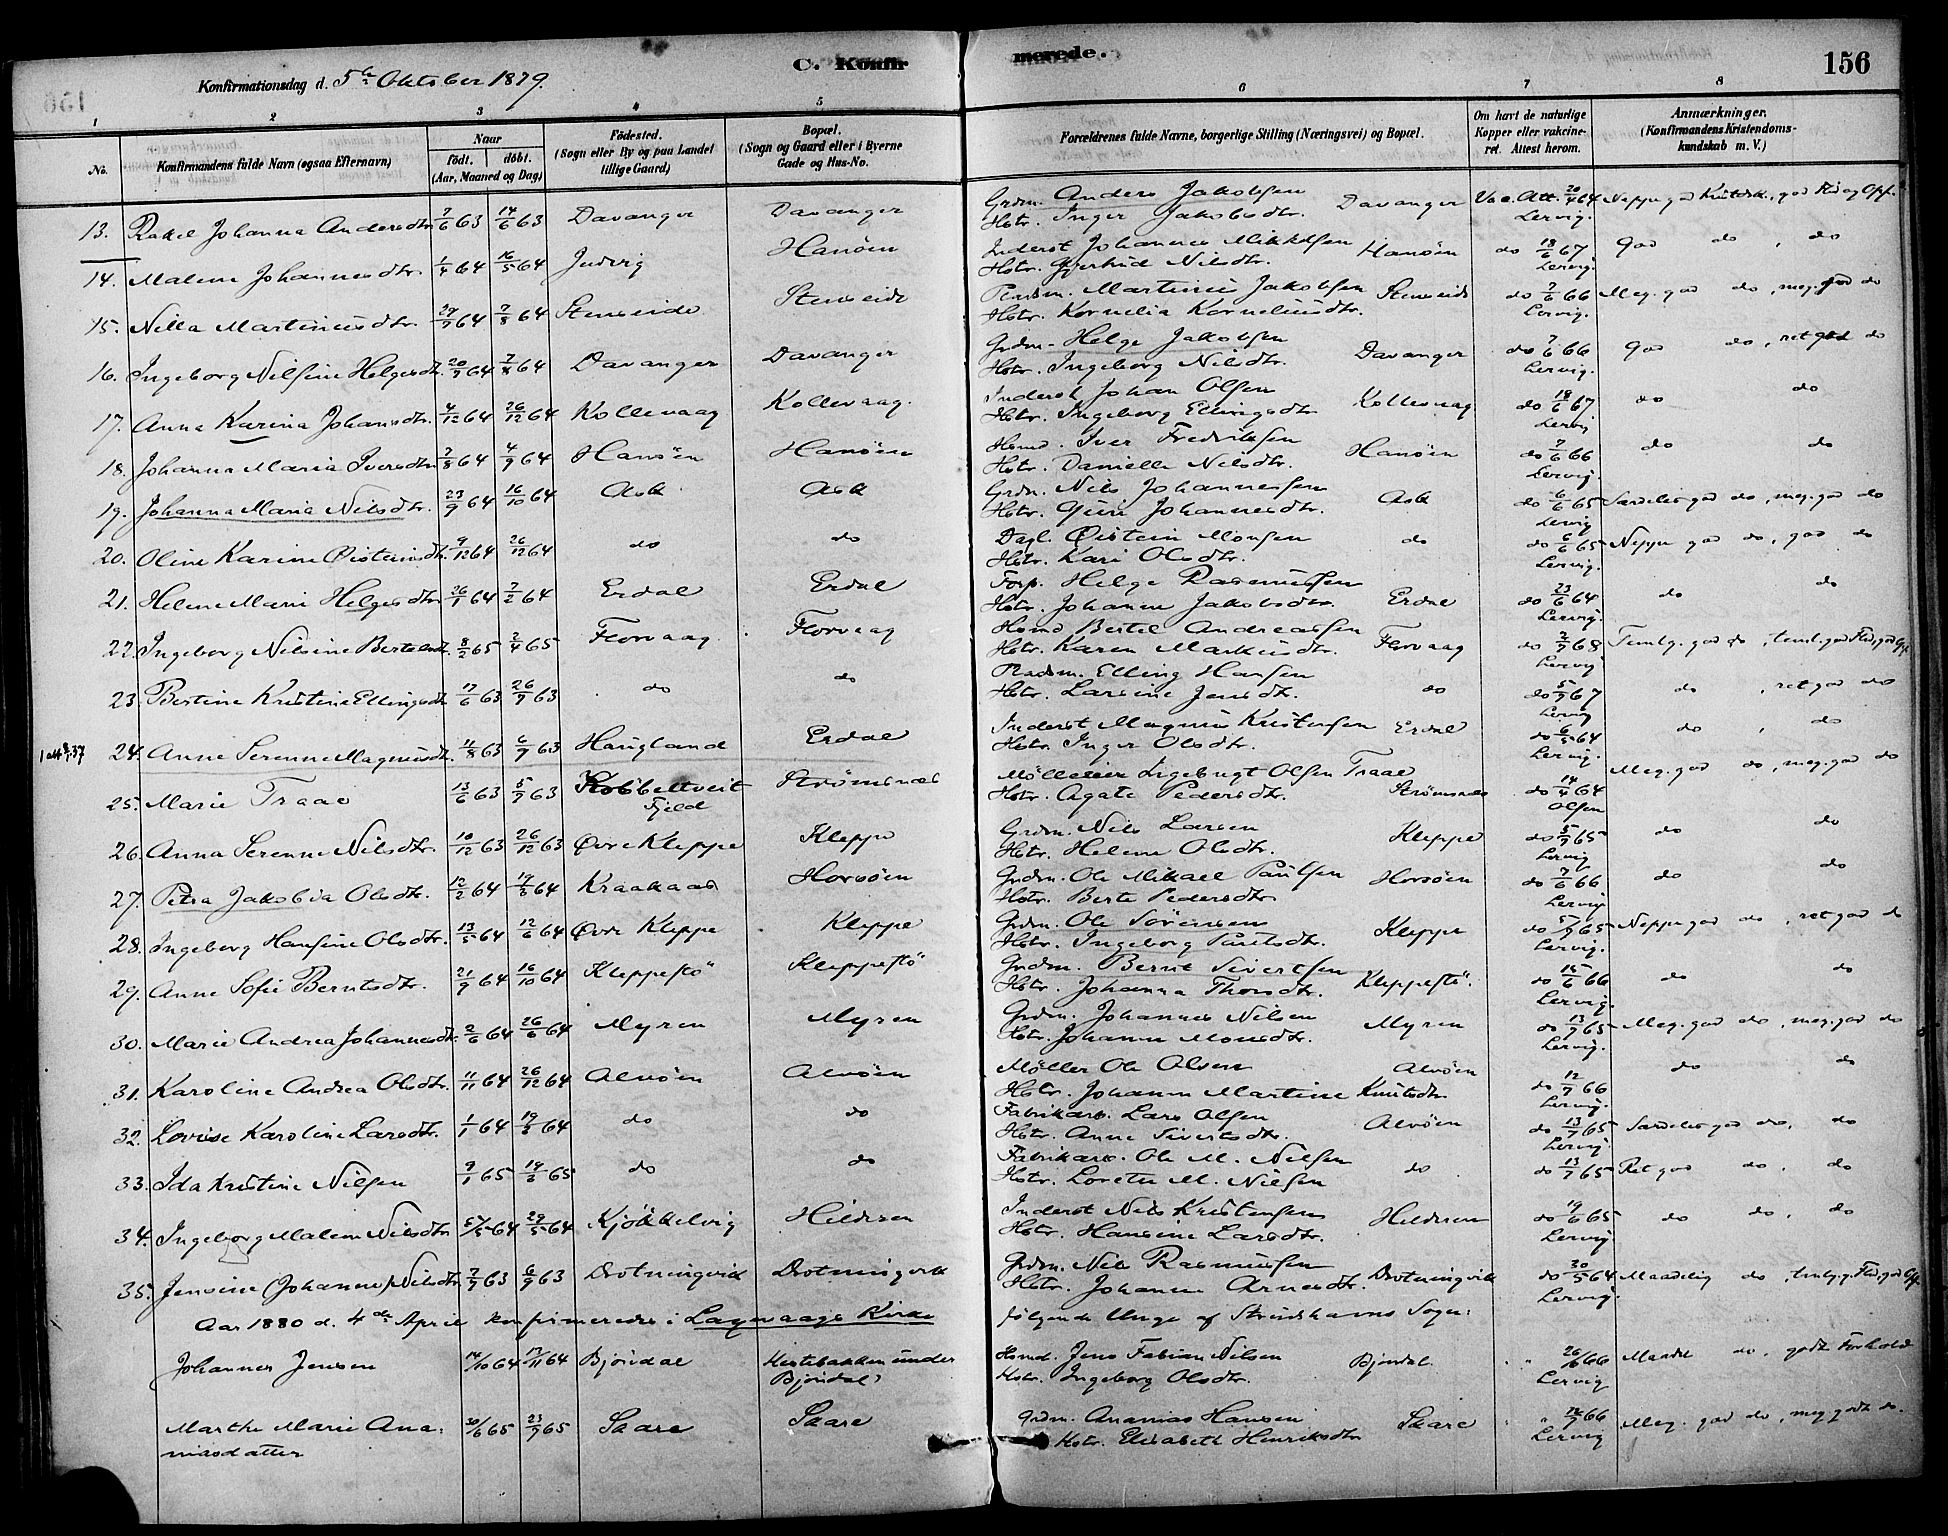 C. Konfirmerede.
156
Konfirmationsdag d. 5te Oktober 1879.
1 2 3 4 5 6 7 8
No. Konfirmandens fulde Navn (ogsaa Efternavn) Naar født. døbt. (Aar, Maaned og Dag) Fødested. (Sogn eller By og paa Landet tillige Gaard) Bopæl. (Sogn og Gaard eller i Byerne Gade og Hus-No. Forældrenes fulde Navne, borgerlige Stilling (Næringsvei) og Bopæl. Om havt de naturlige Kopper eller vakcineret. Attest herom. Anmærkninger. (Konfirmandens Kristendomskundskab m. V.)
13. Rakel Johanna Andersdtr. 7/6 63 14/6 63 Davanger Davanger Grdm. Anders Jakobsen Davanger Vac. Att. 20/4 64
Hstr. Inger Jakobsdtr. Lervig.
14. Malene Johannesdtr. 1/4 64 16/5 64 Judvig Hanöen Inderst Johannes Mikkelsen Hanöen do 18/6 67 God do, do
Hstr. Gjertrud Nilsdtr. Lervig.
15. Nilla Martinusdtr. 7/8 64 Stenseide Martinus Jakobsen do 7/6 66 Meg. god do, meg. god do
Hstr. Kornelia Korneliusdtr. Lervig.
16. Ingeborg Nilsine Helgesdtr. 20/7 64 7/8 64 Davanger Davanger Grdm. Helge Jakobsen Davanger do 7/6 66 God do, ret god do
Hstr. Ingeborg Nilsdtr. Lervig.
17. Anna Karina Johansdtr. 4/12 64 26/12 64 Kollevaag Kollevaag. Inderst Johan Olsen Kollevaag do 18/6 67 do do
Hstr. Ingeborg Ellingsdtr. Lervig
18. Johanna Maria Iversdtr. 7/8 64 4/9 64 Hanöen Hanöen Hsmd. Iver Fredriksen Hanöen do 7/6 66 do do
Hstr. Danielle Nilsdtr. Lervig.
19. Johanna Maria Nilsdtr. 23/9 64 16/10 64 Ask Ask Grdm. Nils Johannesen Ask do 6/6 65 Særdeles god do, meg. god do
Hstr. Guri Johannesdtr. Lervig
20. Oline Karine Østensdtr. 9/12 64 26/12 64 do do Dagl. Øistein Monsen do do 6/6 65 Neppe god do, god do
Hstr. Kari Olsdtr. Lervig.
21. Helene Marie Helgesdtr. 26/1 64 7/2 64 Erdal Erdal Forp. Helge Rasmussen Erdal do 23/6 64 do do
Hstr. Johanne Jakobsdtr. Lervig.
22. Ingeborg Nilsine Bertelsdtr. 8/2 65 2/4 65 Florvaag Florvaag Hsmd Bertel Andreassen Florvaag do 2/9 68
Hstr. Karen Markusdtr. Lervig
23. Bertine Kristine Ellingsdtr. 17/6 63 26/7 63 do do Elling Hansen do do 5/9 67 do, ret god do
Hstr. Larsine Jensdtr. Lervig
24. Anne Serenne Magnusdtr. 11/8 63 6/9 63 Haugland Erdal Inderst Magnus Kristensen Erdal do 6/5 64 do, do
Hstr. Inger Olsdtr. Lervig.
25. Marie Traae 13/6 63 5/7 63 Kobbeltveit Strømsnes Mølleeier Ingebrigt Olsen Traae Strømsnes do 14/4 64 Meg. god do, meg. god do
Fjeld Hstr. Agate Pedersdtr. Olsen
26. Anna Serenne Nilsdtr. 10/12 63 26/12 63 Øvre Kleppe Kleppe Grdm. Nils Larsen Kleppe do 5/7 65 do do
Hstr. Helene Olsdtr. Lervig
27. Petra Jakobia Olsdtr. 12/2 64 19/3 64 Kraakaas Horsöen Grdm. Ole Mikael Paulsen Horsöen do 7/6 66 do do
Hstr. Berte Pedersdtr Lervig
28. Ingeborg Hansine Olsdtr. 13/5 64 12/6 64 Øvre Kleppe Kleppe Grdm. Ole Sörensen Kleppe do 5/7 65 Neppe god do, ret god do
Hstr. Ingeborg Paulsdtr. Lervig.
29. Anne Sofie Berntsdtr. 21/9 64 16/10 64 Kleppestö Kleppestö Grdm. Bernt Sivertsen Kleppestö. do 15/6 66 do do
Hstr. Johanna Thorsdtr. Lervig.
30. Marie Andrea Johannesdtr. 2/6 64 26/6 64 Myren Myren Grdm. Johannes Nilsen Myren do 13/7 65 Meg. god do, meg. god do
Hstr. Johanne Monsdtr. Lervig.
31. Karoline Andrea Olsdtr. 11/11 64 26/12 64 Alvöen Alvöen Möller Ole Olsen Alvöen do 12/7 66 do do
Hstr. Johanne Martine Knutsdtr. Lervig.
32. Lovise Karoline Larsdtr. 1/1 64 19/3 64 do do Fabrikarb. Lars Olsen Alvöen do 13/7 65 Særdeles god do, do
Hstr. Anne Sivertsdtr. Lervig
33. Ida Kristine Nilsen 9/1 65 19/3 65 do do Fabrikarb. Ole M. Nilsen do do 13/7 65 Ret god do, do
Hstr. Lorette M. Nielsen
34. Ingeborg Malene Nilsdtr. 5/5 64 29/5 64 Kjökkelvig Hilderen Inderst Nils Kristensen Hilderen do 19/6 65 do do, do
Hstr. Hansine Larsdtr. Lervig.
35. Jensine (Johanne) Nilsdtr. 7/7 63 6/9 63 Drotningvik Drotningvik Grdm. Nils Rasmussen Drotningvik do 30/5 64 Maadelig do
Hstr. Johanne Arnesdtr. Lervig.
Aar 1880 d. 4de April konfirmeredes i Laxevaags Kirke følgende Unge af Strudshavns Sogn:
Johannes Jensen 14/10 64 13/11 64 Bjöndal under Hsmd. Jens Fabian Nilsen Bjöndal. " 26/6 66 do, godt Forhold
Bjöndal Hstr. Ingeborg Olsdtr. Lervig
Marthe Marie Ana- 30/6 65 23/7 65 Skare Skare Grdm. Ananias Hansen Skare " 12/7 66 Meg. god do, meg godt do.
niasdatter Hstr. Elisabeth Henriksdtr Lervig